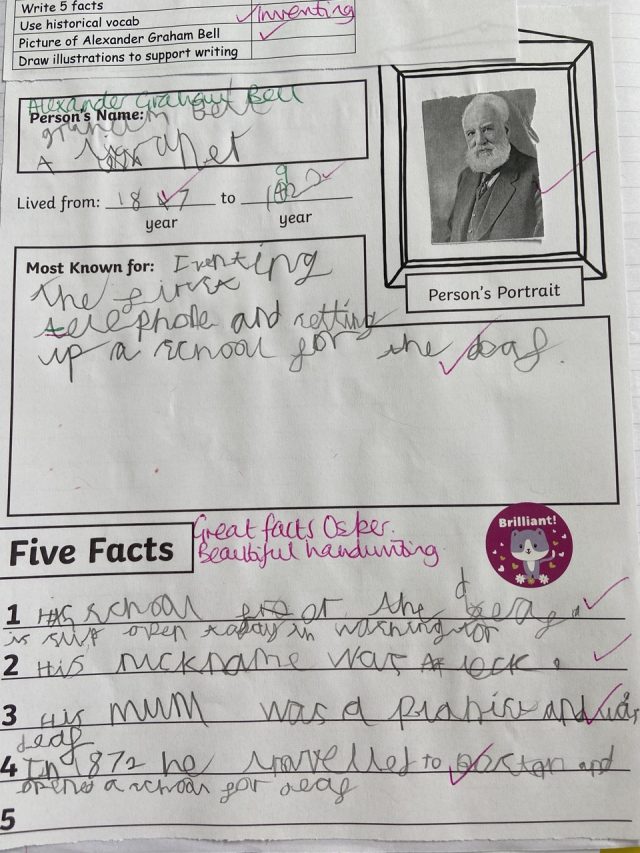 Write 5 facts
Use historical vocab
Inventing
Picture of Alexander Graham Bell
Draw illustrations to support writing
Alexander Graham Bell
Person's Name:
A
Lived from: 1847 to 1922
year year
Person's Portrait
Most Known for: Iventing
the first
telephone and setting
up a school for the deaf.
Great facts Osker.
Beautiful handwriting.
Brilliant!
Five Facts
1 His school for the deaf
is still open today in washington
2 His nickname was Aleck.
3 His mum was a pianist and was
deaf
4 In 1872 he travelled to Boston and
opened a school for deaf
5